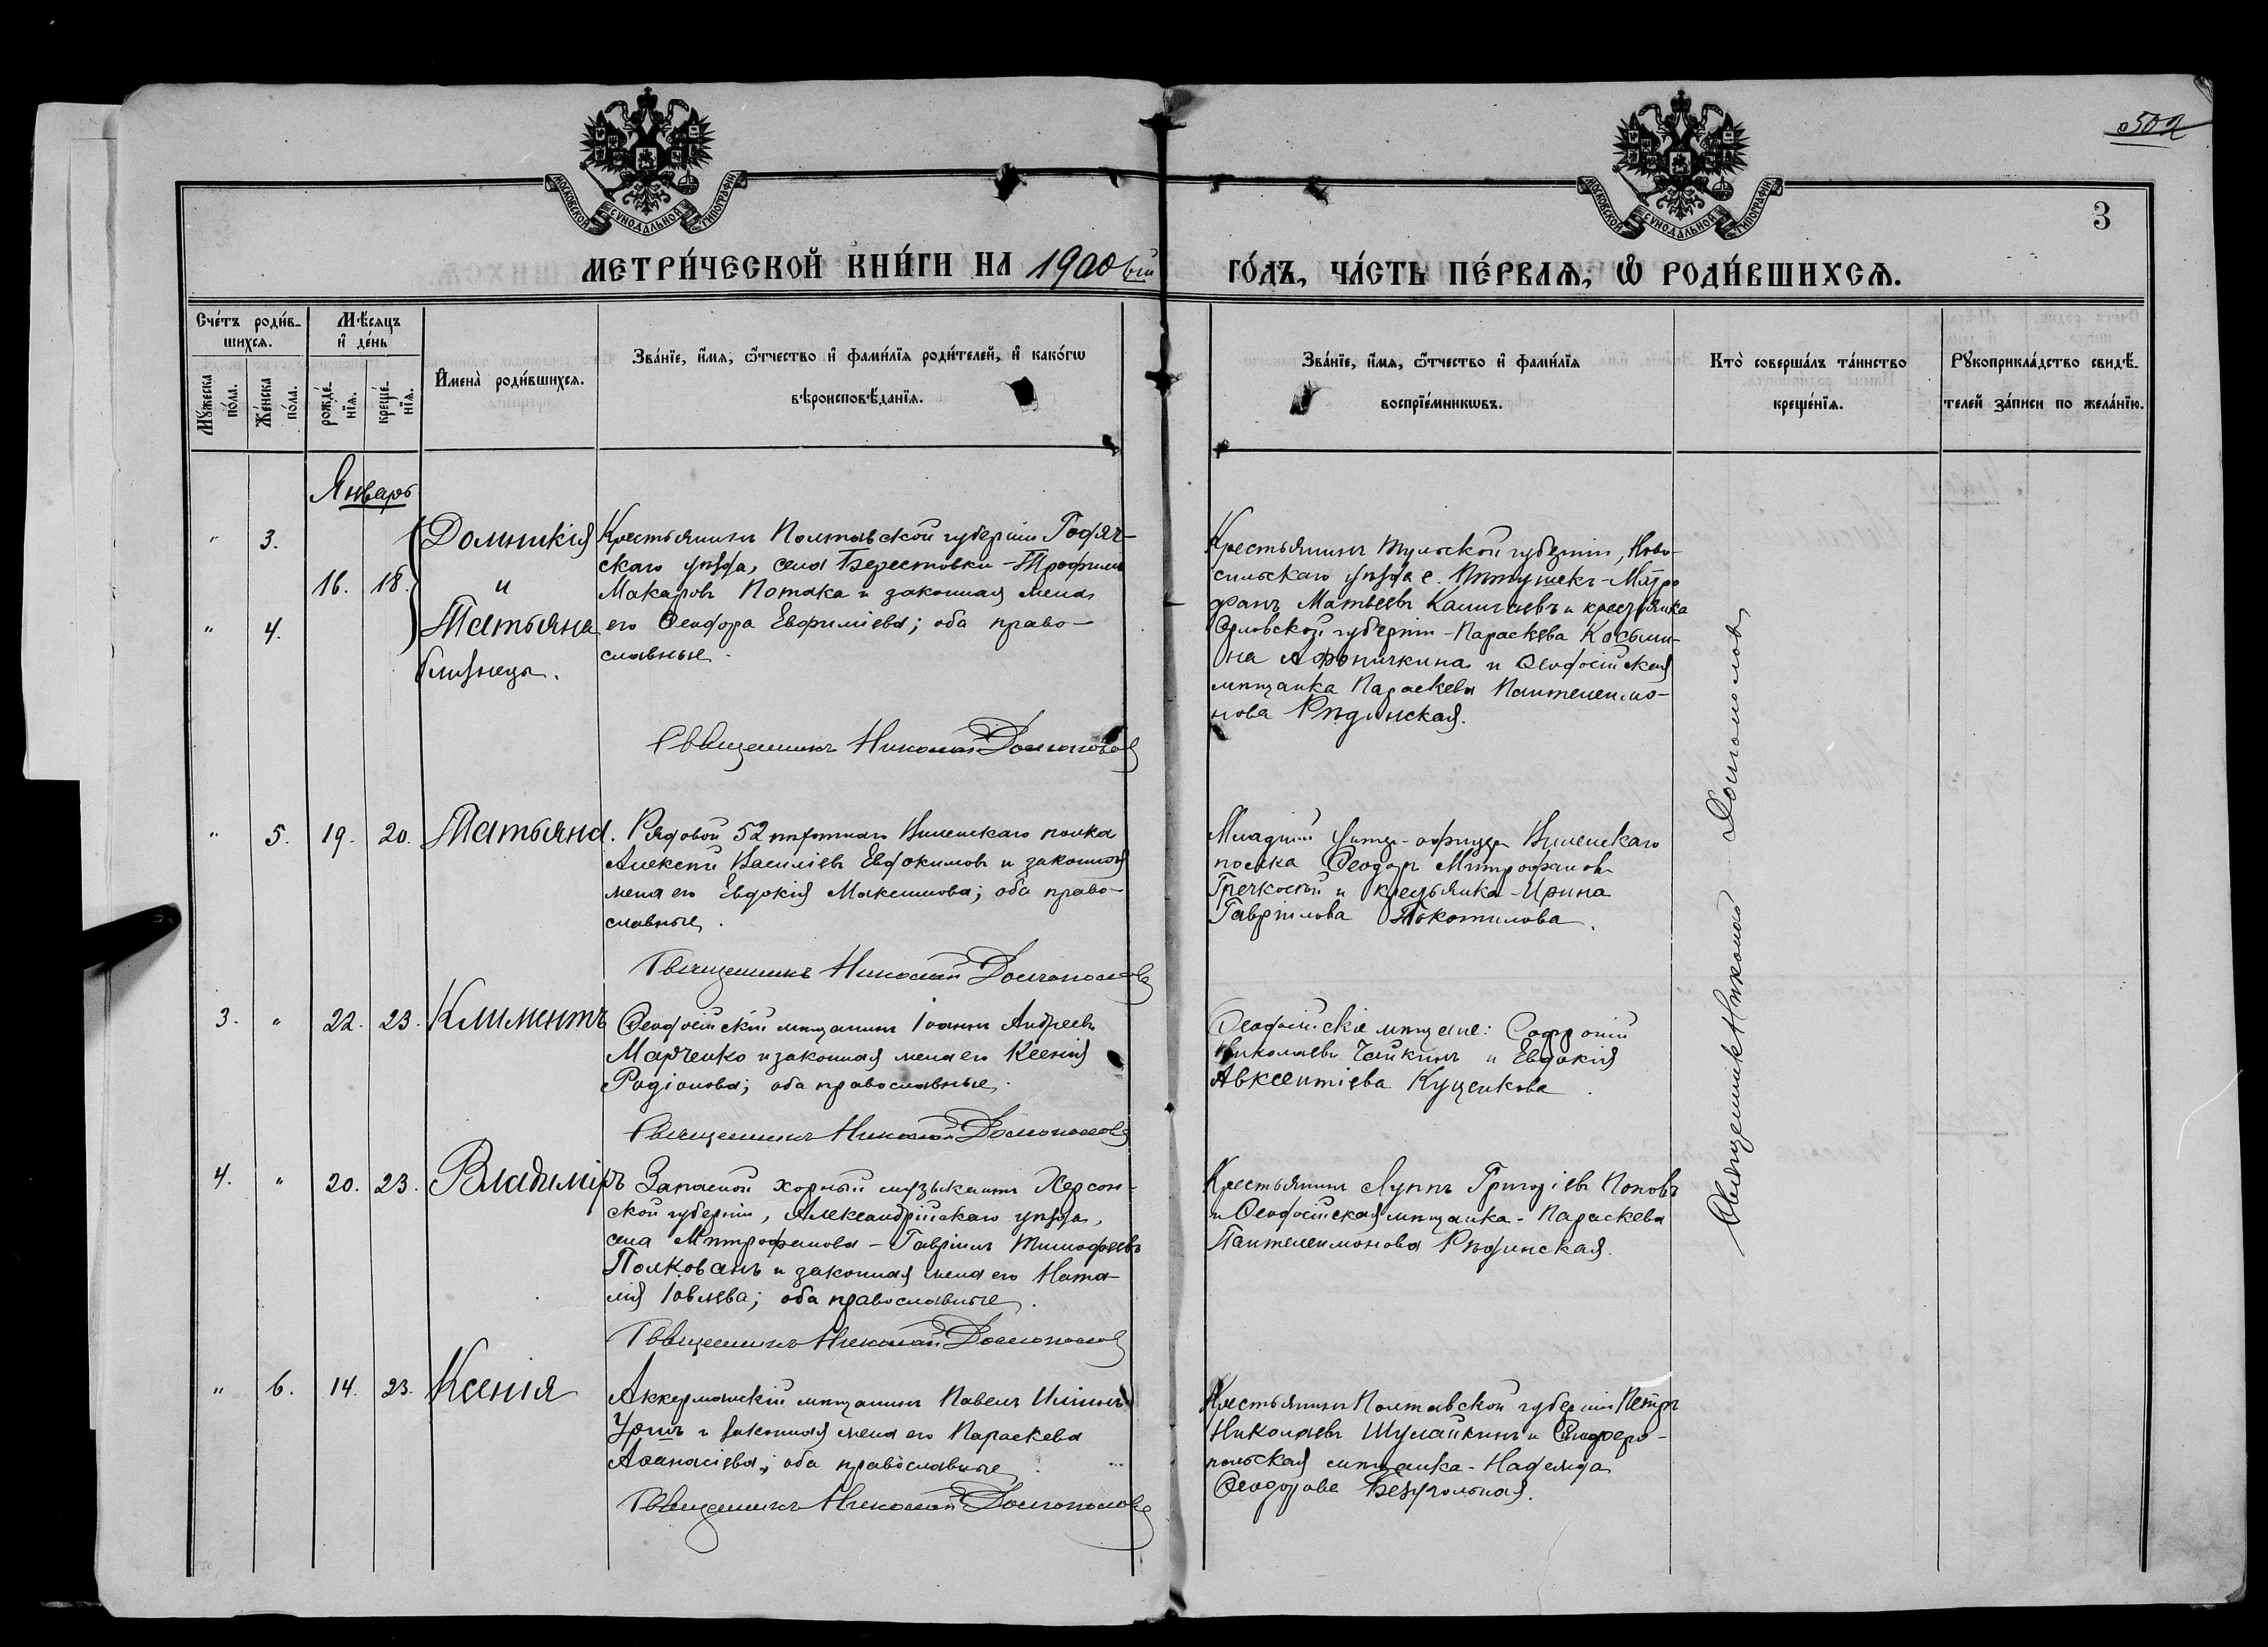 502
3
МОСКОВСКОЙ СѴНОДАЛЬНОЙ ТИПОГРАФІИ
МОСКОВСКОЙ СѴНОДАЛЬНОЙ ТИПОГРАФІИ
МЕТРИ́ЧЕСКОЙ КНИ́ГИ НА 1900ый ГО́ДЪ, ЧА́СТЬ ПЕ́РВАѦ, Ѡ҆ РОДИ́ВШИХСѦ.
Сче́тъ роди́в-
шихсѧ.
Мꙋ́жеска по́ла.
Же́нска по́ла.
Мѣ́сѧцъ
и҆ де́нь
рожде́-
нїѧ.
креще́-
нїѧ.
И҆мена̀ роди́вшихсѧ.
Зва́нїе, и҆́мѧ, ѻ҆́тчество и҆ фами́лїѧ роди́телей, и҆ како́гѡ
вѣроисповѣ́данїѧ.
Зва́нїе, и҆́мѧ, ѻ҆́тчество и҆ фами́лїѧ
воспрїе́мникѡвъ.
Кто̀ соверша́лъ та́инство
креще́нїѧ.
Рꙋкоприкла́дство свидѣ́-
телей за́писи по жела́нїю.
Январь
" 3.
16. 18.
" 4.
Домникія
и
Татьяна
близнецы.
Крестьянинъ Полтавской губерніи Гадяч-
скаго уѣзда, села Берестовки - Трофимъ
Макаровъ Потака и законная жена
его Ѳеодора Евфиміева; оба право-
славные.
Священникъ Николай Долгополовъ
Крестьянинъ Тульской губерніи, Ново-
сильскаго уѣзда с. Митро-
фанъ Матвеевъ и крестьянка
Орловской губерніи - Параскева Косьми-
на Афоничкина и Ѳеодосійская
мѣщанка Параскева Пантелеимо-
нова Рѣдинская.
" 5. 19. 20. Татьяна.
Рядовой 52 пѣхотнаго Виленскаго полка
Алексѣй Васильевъ Евдокимовъ и законная
жена его Евдокія Максимова; оба право-
славные.
Священникъ Николай Долгополовъ
Младшій Унтеръ-офицеръ Виленскаго
полка Ѳеодоръ Митрофановъ
и крестьянка - Ирина
Гавріилова Покотилова.
3. " 22. 23. Климентъ
Ѳеодосійскій мѣщанинъ Іоаннъ Андреевъ
Марченко и законная жена его Ксенія
Родіонова; оба православные.
Священникъ Николай Долгополовъ
Ѳеодосійскіе мѣщане: Софроній
Николаевъ Чайкинъ и Евдокія
Авксентіева Куценкова.
4. " 20. 23. Владиміръ
Запасной хорный музыкантъ Херсон-
ской губерніи, Александрійскаго уѣзда,
села Митрофанова - Гавріилъ Тимофеевъ
Полкованъ и законная жена его Ната-
лія Іовлева; оба православные.
Священникъ Николай Долгополовъ
Крестьянинъ Луппъ Григоріевъ Поповъ
и Ѳеодосійская мѣщанка - Параскева
Пантелеимонова Рѣдинская.
" 6. 14. 23. Ксенія
Аккерманскій мѣщанинъ Павелъ Иліинъ
и законная жена его Параскева
Аѳанасіева; оба православные.
Священникъ Николай Долгополовъ
Крестьянинъ Полтавской губерніи Петръ
Николаевъ Шулайкинъ и Симферо-
польская мѣщанка - Надежда
Ѳеодорова Безугольная.
Священникъ Николай Долгополовъ